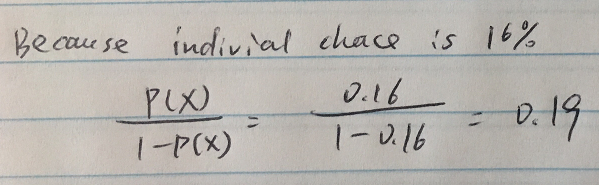 Because indivial chace is 16%
P(X) / 1-P(X) = 0.16 / 1-0.16 = 0.19